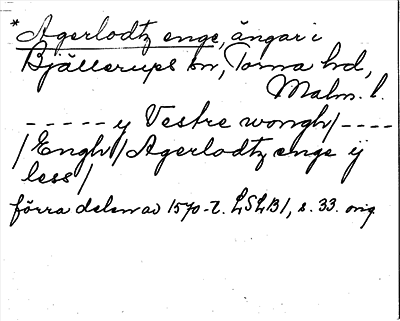 * Agerlodtz enge, ängar i
Bjällerups sn, Torna hd,
Malm. l.
----- y Vestre wongh/----
/Engh/ Agerlodtz enge ÿ
less/
förra delen av 1570-t. LSLB1, s. 33. orig